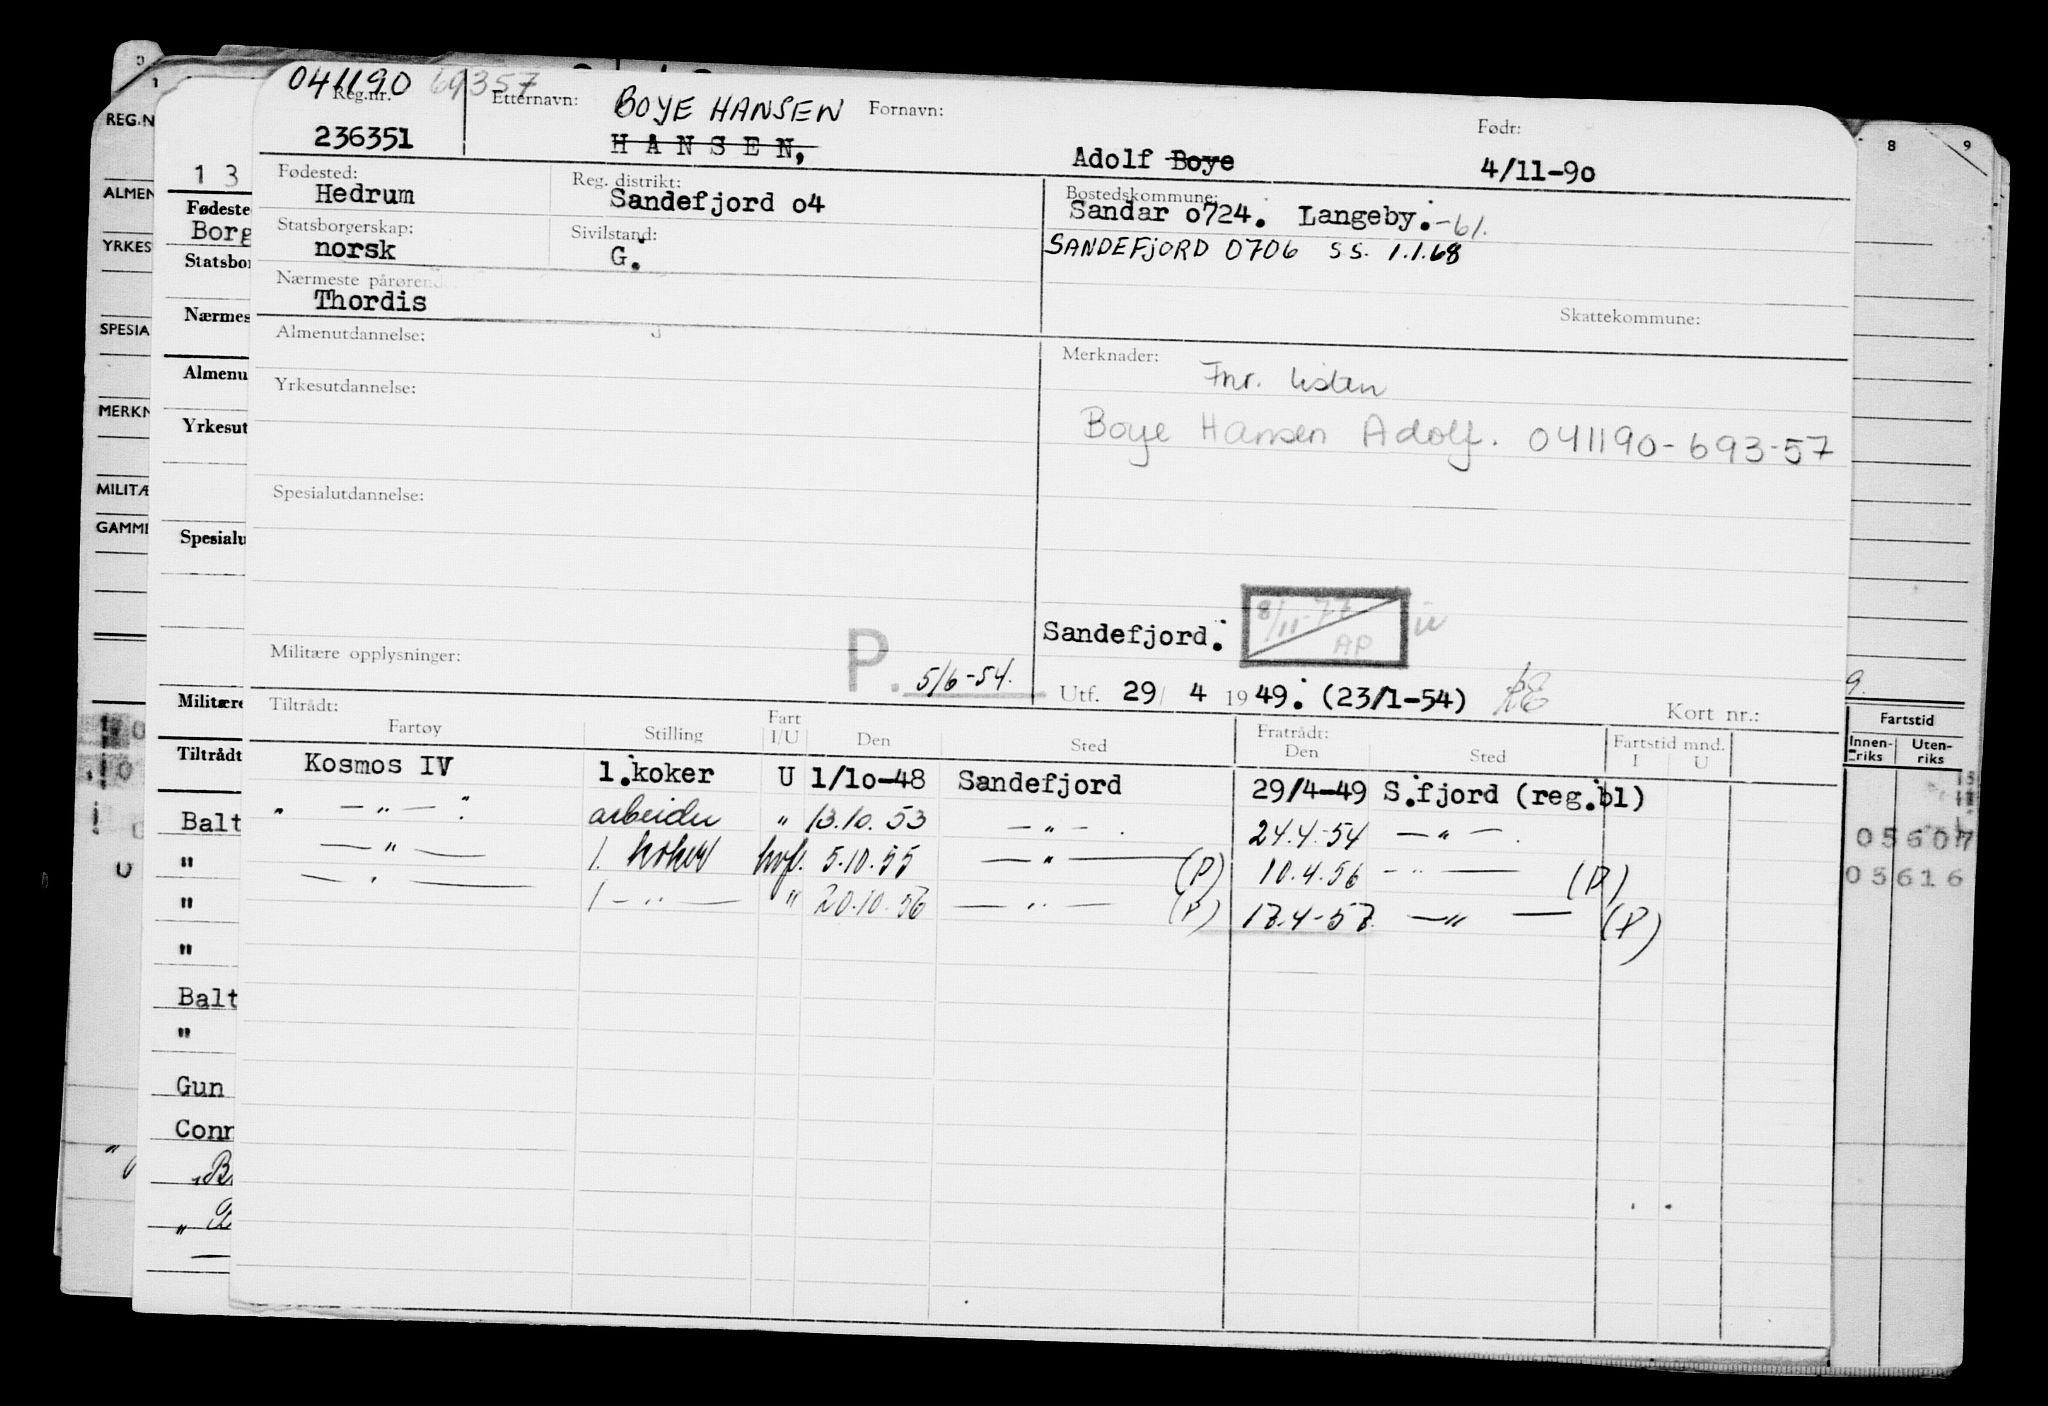 041190 69357
Reg.nr. Etternavn: BOYE HANSEN Fornavn: Født:
236351 HANSEN, Adolf Boye 4/11-90
Fødested: Reg. distrikt: Bostedskommune:
Hedrum Sandefjord 04 Sandar 0724. Langeby. -61.
Statsborgerskap: Sivilstand:
norsk G. SANDEFJORD 0706 S S. 1.1.68
Nærmeste pårørende
Thordis
Skattekommune:
Almenutdannelse: Merknader:
Fnr. listen
Yrkesutdannelse:
Boye Hansen Adolf. 041190-693-57
Spesialutdannelse:
Sandefjord. 8/11-77 AP
Militære opplysninger: P. 5/6-54.
Utf. 29/ 4 1949. (23/1-54)
Kort nr.:
Tiltrådt: Fratrådt: Fartstid mnd.
Fartøy Stilling Fart I/U Den Sted Den Sted I U
Kosmos IV 1.koker U 1/10-48 Sandefjord 29/4-49 S.fjord (reg.bl)
" — " — " arbeider " 13.10.53 — " — . 24.4-54 — " — .
— " — 1. koker hvf. 5.10.55 — " — (P) 10.4.56 — " — (P)
— " — 1 — " — " 20.10.56 — " — (P) 17.4-57. — " — (P)
REG.N
ALMEN
YRKES
SPESIA
MERKN
MILITÆ
GAMML
1 3
Fødeste
Borg
Statsbor
Nærmes
Almenu
Yrkesut
Spesialu
Militære
Tiltrådt
Balt
"
"
"
Balt
"
Gun
Conn
8 9
9.
Fartstid
Innen-riks Uten-riks
05607
03616